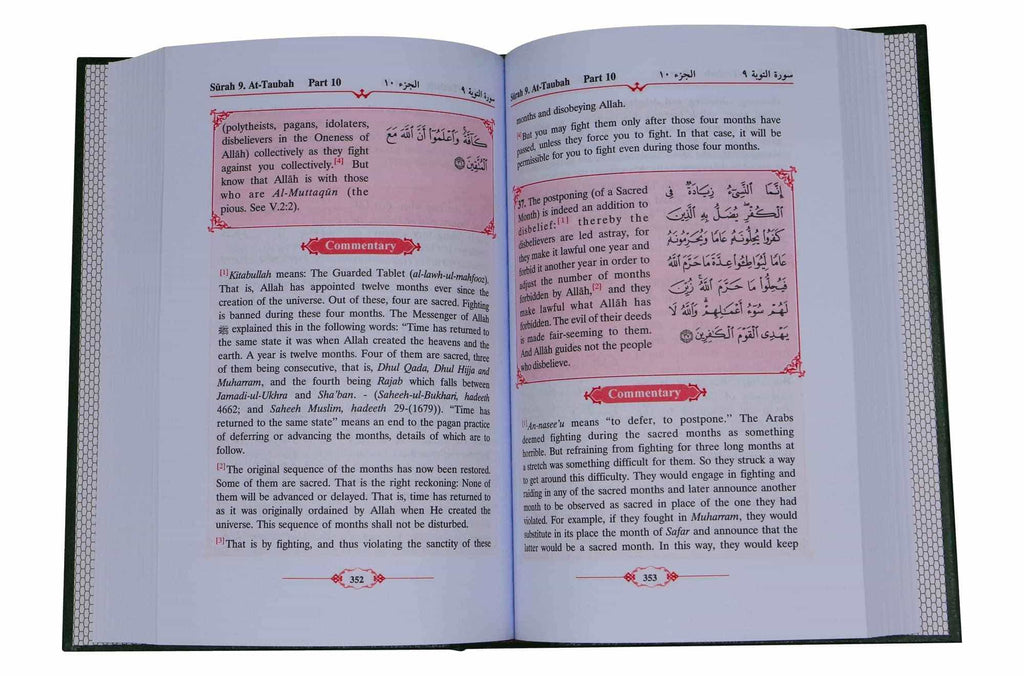 Sūrah 9. At-Taubah Part 10 الجزء ١٠ سورة التوبة ٩
(polytheists, pagans, idolaters,
disbelievers in the Oneness of
Allāh) collectively as they fight
against you collectively.[4] But
know that Allāh is with those
who are Al-Muttaqūn (the
pious. See V.2:2).
كَآفَّةً وَاعْلَمُوا أَنَّ اللَّهَ مَعَ
الْمُتَّقِينَ ٣٦
Commentary
[1]Kitabullah means: The Guarded Tablet (al-lawh-ul-mahfooz).
That is, Allah has appointed twelve months ever since the
creation of the universe. Out of these, four are sacred. Fighting
is banned during these four months. The Messenger of Allah
ﷺ explained this in the following words: “Time has returned to
the same state it was when Allah created the heavens and the
earth. A year is twelve months. Four of them are sacred, three
of them being consecutive, that is, Dhul Qada, Dhul Hijja and
Muharram, and the fourth being Rajab which falls between
Jamadi-ul-Ukhra and Sha’ban. - (Saheeh-ul-Bukhari, hadeeth
4662; and Saheeh Muslim, hadeeth 29-(1679)). “Time has
returned to the same state” means an end to the pagan practice
of deferring or advancing the months, details of which are to
follow.
[2]The original sequence of the months has now been restored.
Some of them are sacred. That is the right reckoning: None of
them will be advanced or delayed. That is, time has returned to
as it was originally ordained by Allah when He created the
universe. This sequence of months shall not be disturbed.
[3]That is by fighting, and thus violating the sanctity of these
352
Sūrah 9. At-Taubah Part 10 الجزء ١٠ سورة التوبة ٩
months and disobeying Allah.
[4]But you may fight them only after those four months have
passed, unless they force you to fight. In that case, it will be
permissible for you to fight even during those four months.
37. The postponing (of a Sacred
Month) is indeed an addition to
disbelief:[1] thereby the
disbelievers are led astray, for
they make it lawful one year and
forbid it another year in order to
adjust the number of months
forbidden by Allāh,[2] and they
make lawful what Allāh has
forbidden. The evil of their deeds
is made fair-seeming to them.
And Allāh guides not the people
who disbelieve.
إِنَّمَا النَّسِيءُ زِيَادَةٌ فِي
الْكُفْرِ يُضَلُّ بِهِ الَّذِينَ
كَفَرُوا يُحِلُّونَهُ عَامًا وَيُحَرِّمُونَهُ
عَامًا لِيُوَاطِئُوا عِدَّةَ مَا حَرَّمَ اللَّهُ
فَيُحِلُّوا مَا حَرَّمَ اللَّهُ زُيِّنَ
لَهُمْ سُوءُ أَعْمَالِهِمْ وَاللَّهُ لَا
يَهْدِي الْقَوْمَ الْكَافِرِينَ ٣٧
Commentary
[1]An-nasee’u means “to defer, to postpone.” The Arabs
deemed fighting during the sacred months as something
horrible. But refraining from fighting for three long months at
a stretch was something difficult for them. So they struck a way
to get around this difficulty. They would engage in fighting and
raiding in any of the sacred months and later announce another
month to be observed as sacred in place of the one they had
violated. For example, if they fought in Muharram, they would
substitute in its place the month of Safar and announce that the
latter would be a sacred month. In this way, they would keep
353